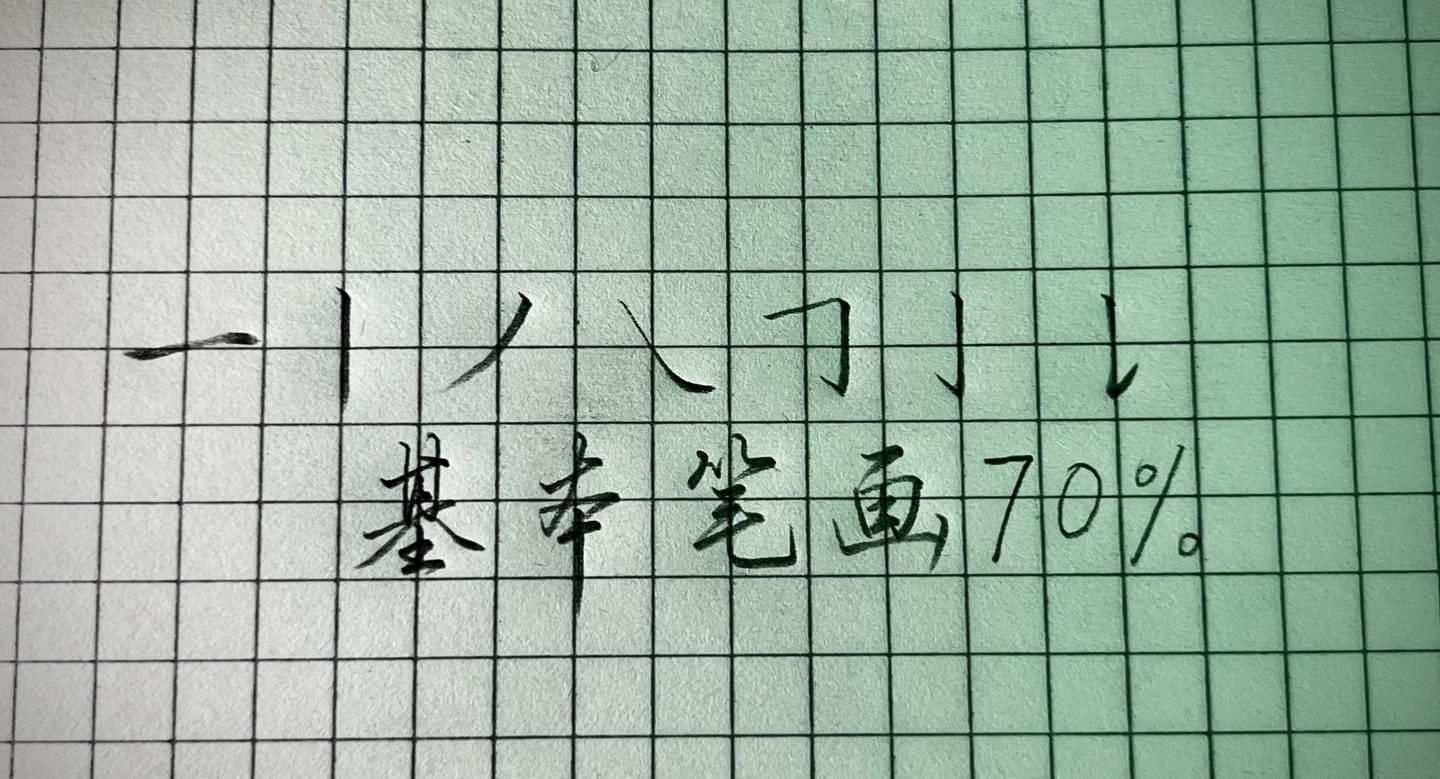 一丨丿㇏𠃌亅𠄌
基本笔画70%